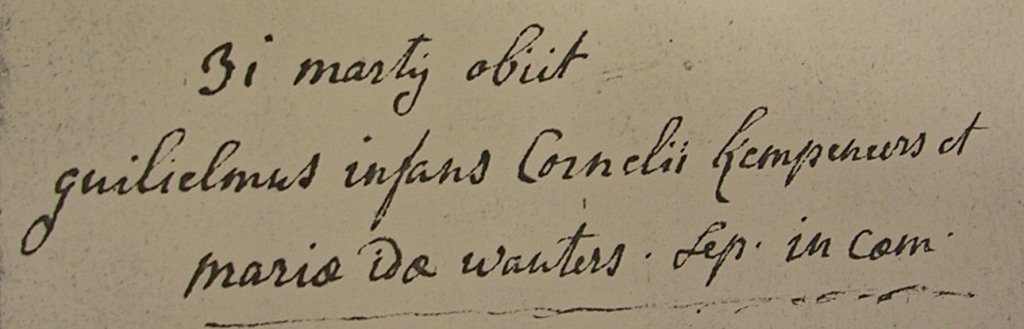 3i martij obiit
guilielmus infans Cornelii Kempeneers et
mariæ idæ wauters. Sep. in cœm.